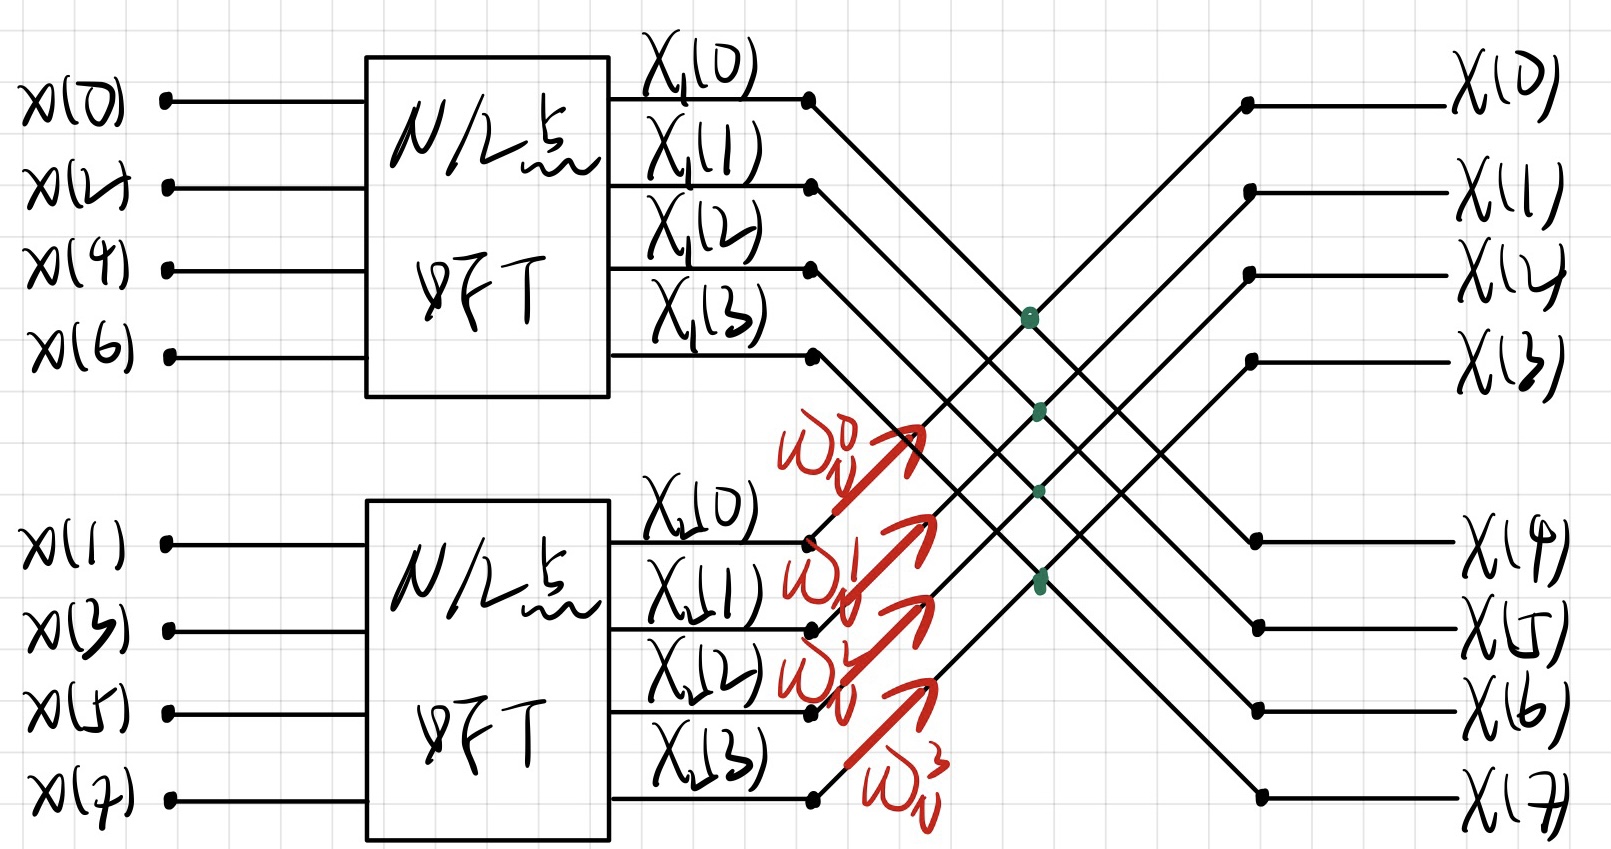 x(0)
x(2)
x(4)
x(6)
N/2点
DFT
X₁(0)
X₁(1)
X₁(2)
X₁(3)
X(0)
X(1)
X(2)
X(3)
x(1)
x(3)
x(5)
x(7)
N/2点
DFT
X₂(0)
X₂(1)
X₂(2)
X₂(3)
W_N^0
W_N^1
W_N^2
W_N^3
X(4)
X(5)
X(6)
X(7)